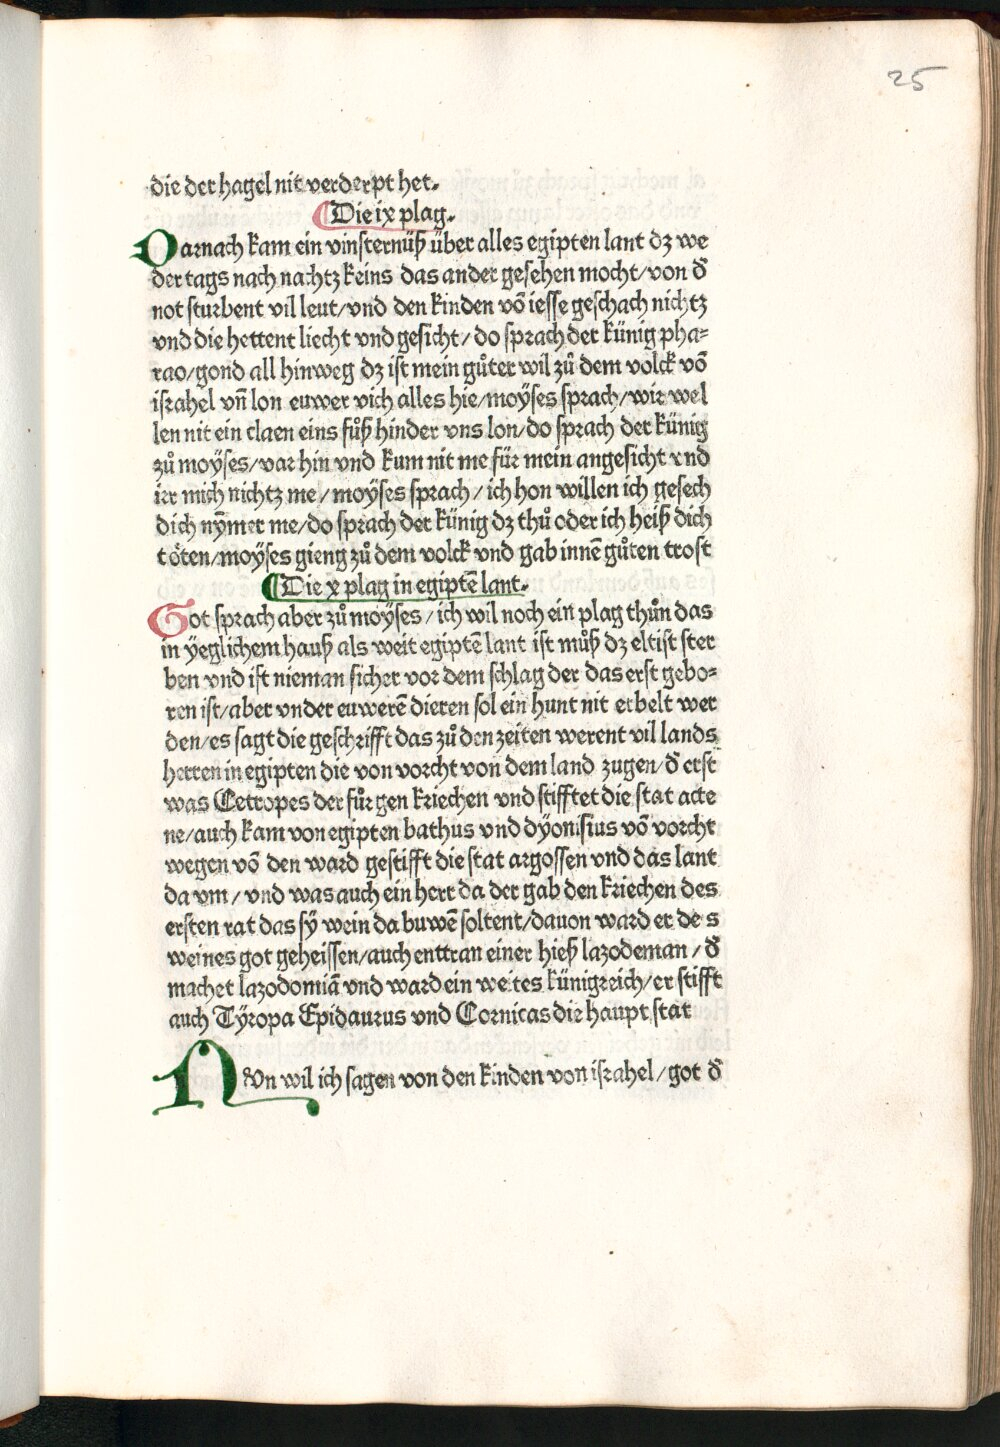 25
die der hagel nit verderpt het.
Die ix plag.
Darnach kam ein vinsternüß über alles egipten lant dz we
der tags nach nachtz keins das ander gesehen mocht/von đ
not sturbent vil leut/vnd den kinden võ iesse geschach nichtz
vnd die hettent liecht vnd gesicht/ do sprach der künig pha⸗
rao/gond all hinweg dz ist mein gůter wil zů dem volck võ
israhel vñ lon euwer vich alles hie/moÿses sprach/wir wel
len nit ein claen eins fůß hinder vns lon/do sprach der künig
zů moÿses/var hin vnd kum nit me für mein angesicht vnd
irr mich nichtz me/moÿses sprach/ich hon willen ich gesech
dich nÿmer me/do sprach der künig dz thů oder ich heiß dich
töten/moÿses gieng zů dem volck vnd gab innẽ gůten trost
Die x plag in egiptẽ lant.
Got sprach aber zů moÿses/ich wil noch ein plag thůn das
in ÿeglichem hauß als weit egiptẽ lant ist můß dz eltist ster
ben vnd ist nieman sicher vor dem schlag der das erst gebo⸗
ren ist/aber vnder euwerẽ dieren sol ein hunt nit erbelt wer
den/es sagt die geschrifft das zů den zeiten werent vil lands
herren in egipten die von vorcht von dem land zugen/đ erst
was Cetropes der fůr gen kriechen vnd stifftet die stat acte
ne/auch kam von egipten bathus vnd dÿonisius võ vorcht
wegen võ den ward gestifft die stat argossen vnd das lant
da vm/ vnd was auch ein herr da der gab den kriechen des
ersten rat das sÿ wein da buwẽ soltent/dauon ward er des
weines got geheissen/auch enttran einer hieß lazodeman/đ
machet lazodomiã vnd ward ein weites künigreich/er stifft
auch Tÿropa Epidaurus vnd Cornicas die haupt stat
NVn wil ich sagen von den kinden von israhel/got đ